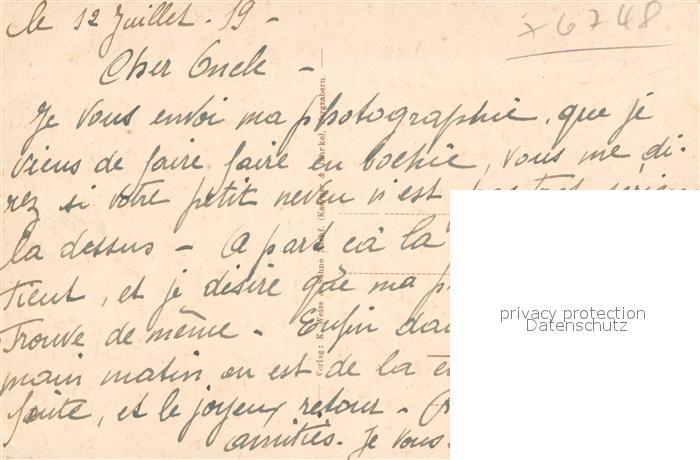 le 12 Juillet - 19 -
x 6748
Cher Oncle -
Je vous envoi ma photographie, que je
viens de faire faire en bochie, vous me di-
rez si votre petit neveu n'est pas trop
la dessus - A part cà la
tient, et je désire que ma
trouve de même - Enfin
main matin on est de la
fuite, et le joyeux retour -
amitiés. Je vous
Verlag: K. Weiss
privacy protection
Datenschutz